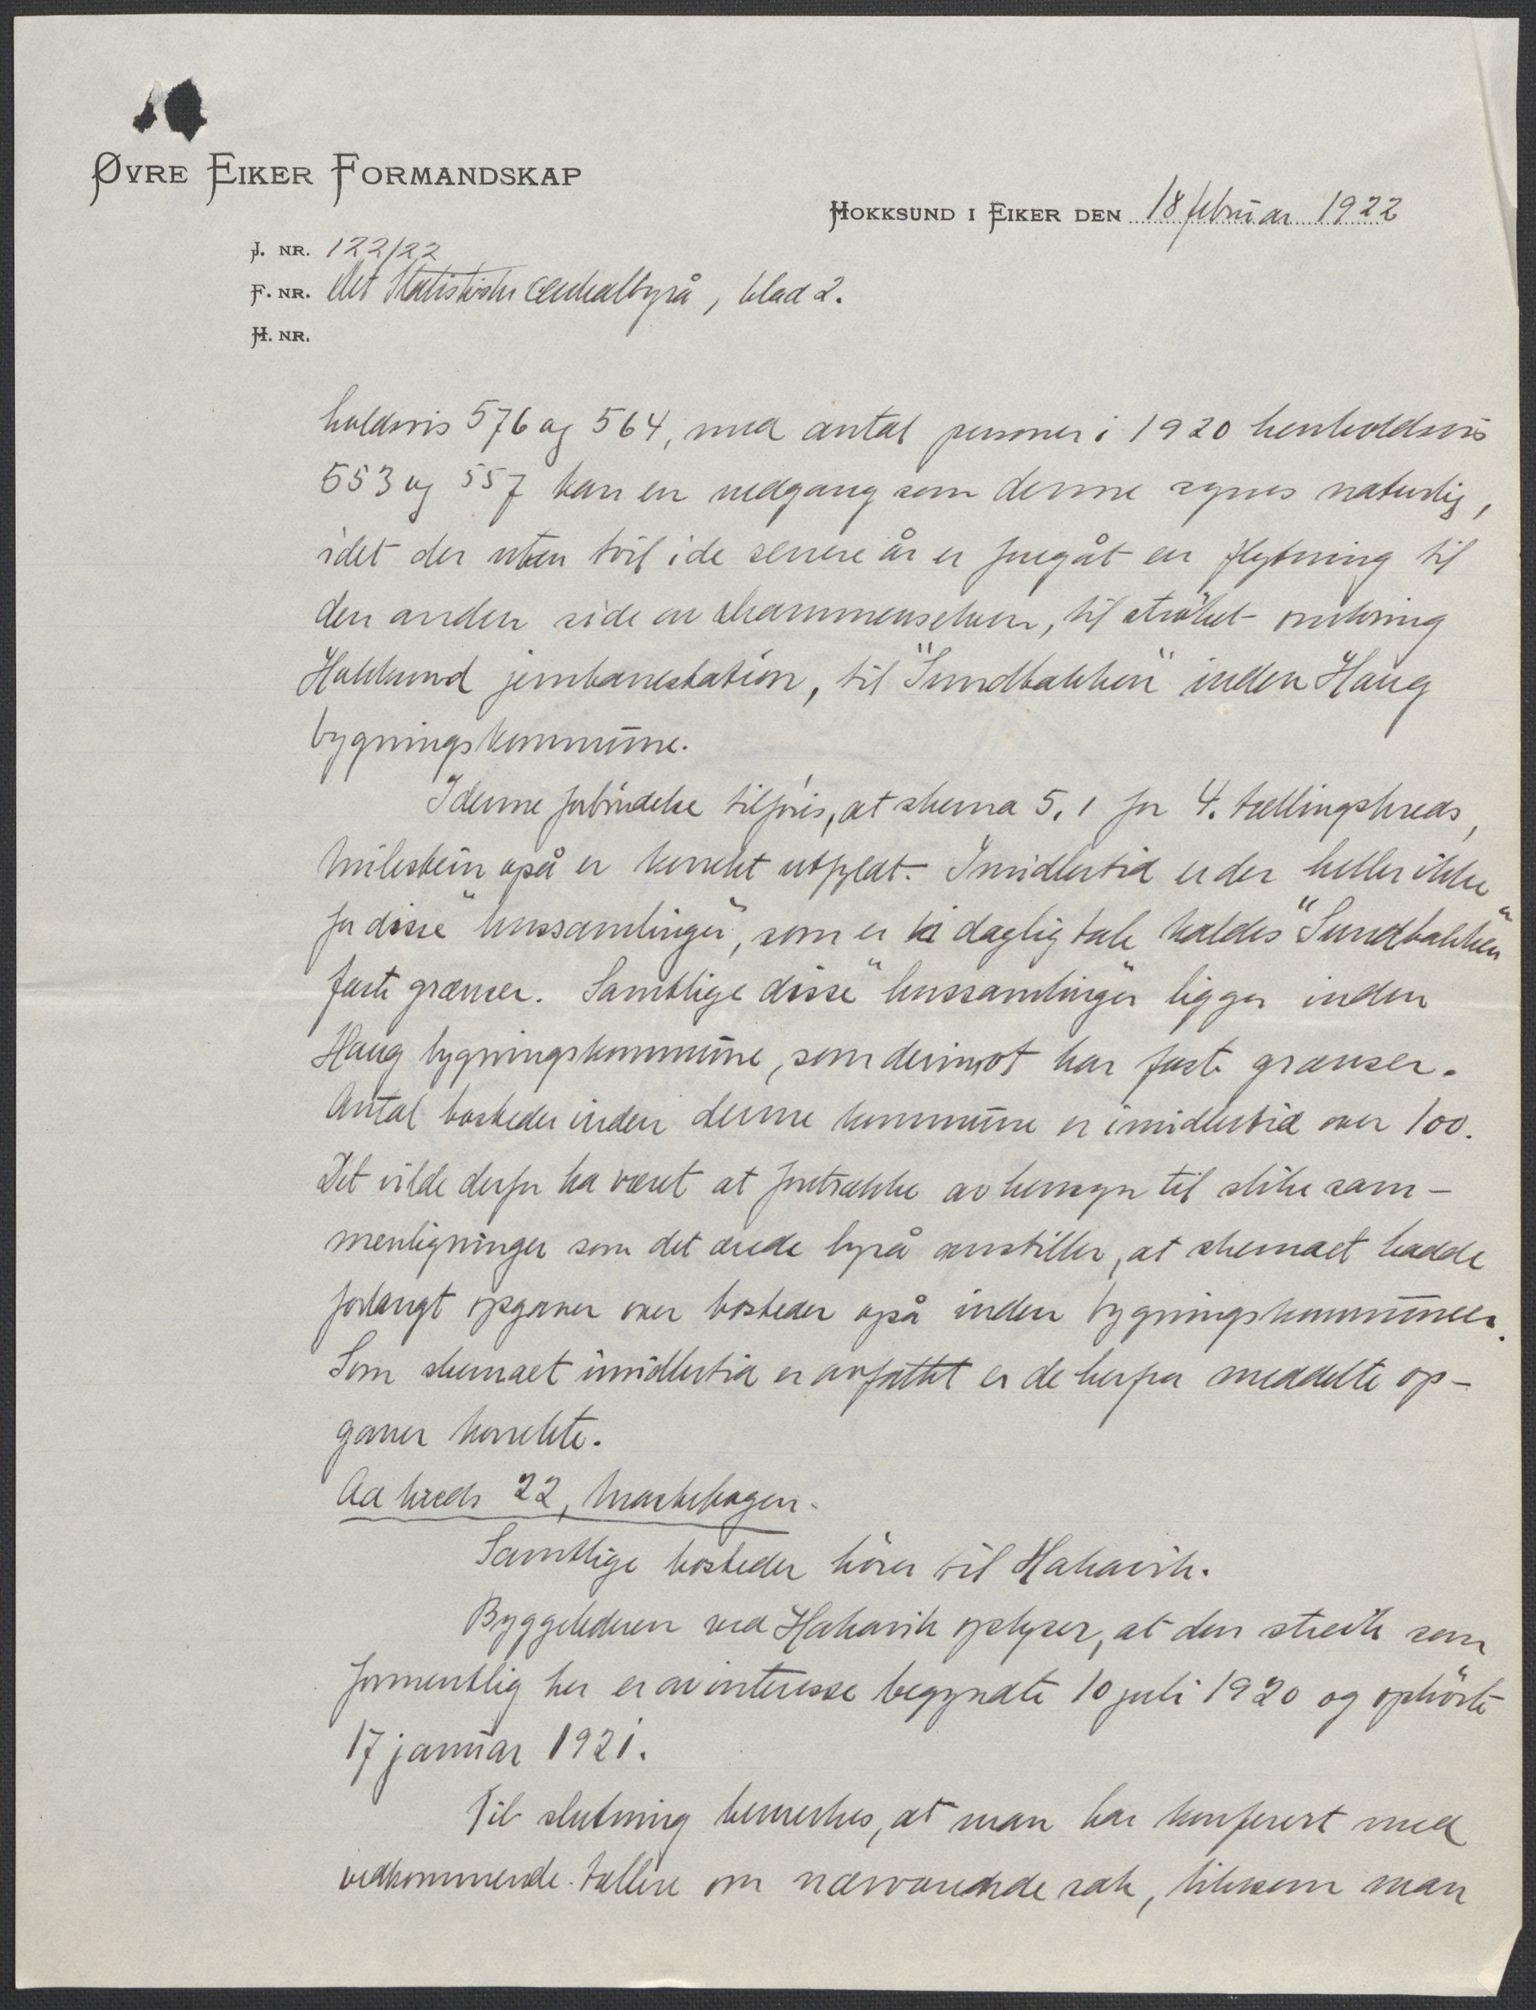 ØVRE EIKER FORMANDSKAP
HOKKSUND I EIKER DEN 18 februar 1922
J. NR. 122/22
F. NR. Det Statistiske centralbyrå, blad 2.
H. NR.
holdsvis 576 og 564, med antal personer i 1920 henholdsvis
553 og 557 kan en nedgang som denne synes naturlig,
idet der uten tvil i de senere år er foregåt en flytning til
den anden side av Drammenselven, til strøket omkring
Hokksund jernbanestation, til "Sundbakken" inden Haug
bygningskommune.
I denne forbindelse tilføies, at skema 5.1 for 4. tællingskreds,
Milestein også er korrekt utfyldt. Imidlertid er der heller ikke
for disse "hussamlinger", som er i daglig tale kaldes "Sundbakken"
faste grænser. Samtlige disse "hussamlinger" ligger inden
Haug bygningskommune, som derimot har faste grænser.
Antal bosteder inden denne kommune er imidlertid over 100.
Det vilde derfor ha været at foretrække av hensyn til slike sam-
menligninger som det ærede byrå anstiller, at skemaet hadde
forlangt opgaver over bosteder også inden bygningskommuner.
Som skemaet imidlertid er avfattet er de herfra meddelte op-
gaver korrekte.
Ad kreds 22, Markebogen.
Samtlige bosteder hører til Hakavik.
Byggelederen ved Hakavik oplyser, at den streik som
formentlig her er av interesse begyndte 10 juli 1920 og ophørte
17 januar 1921.
Til slutning bemerkes, at man har konferert med
vedkommende tællere om nærværende sak, likesom man